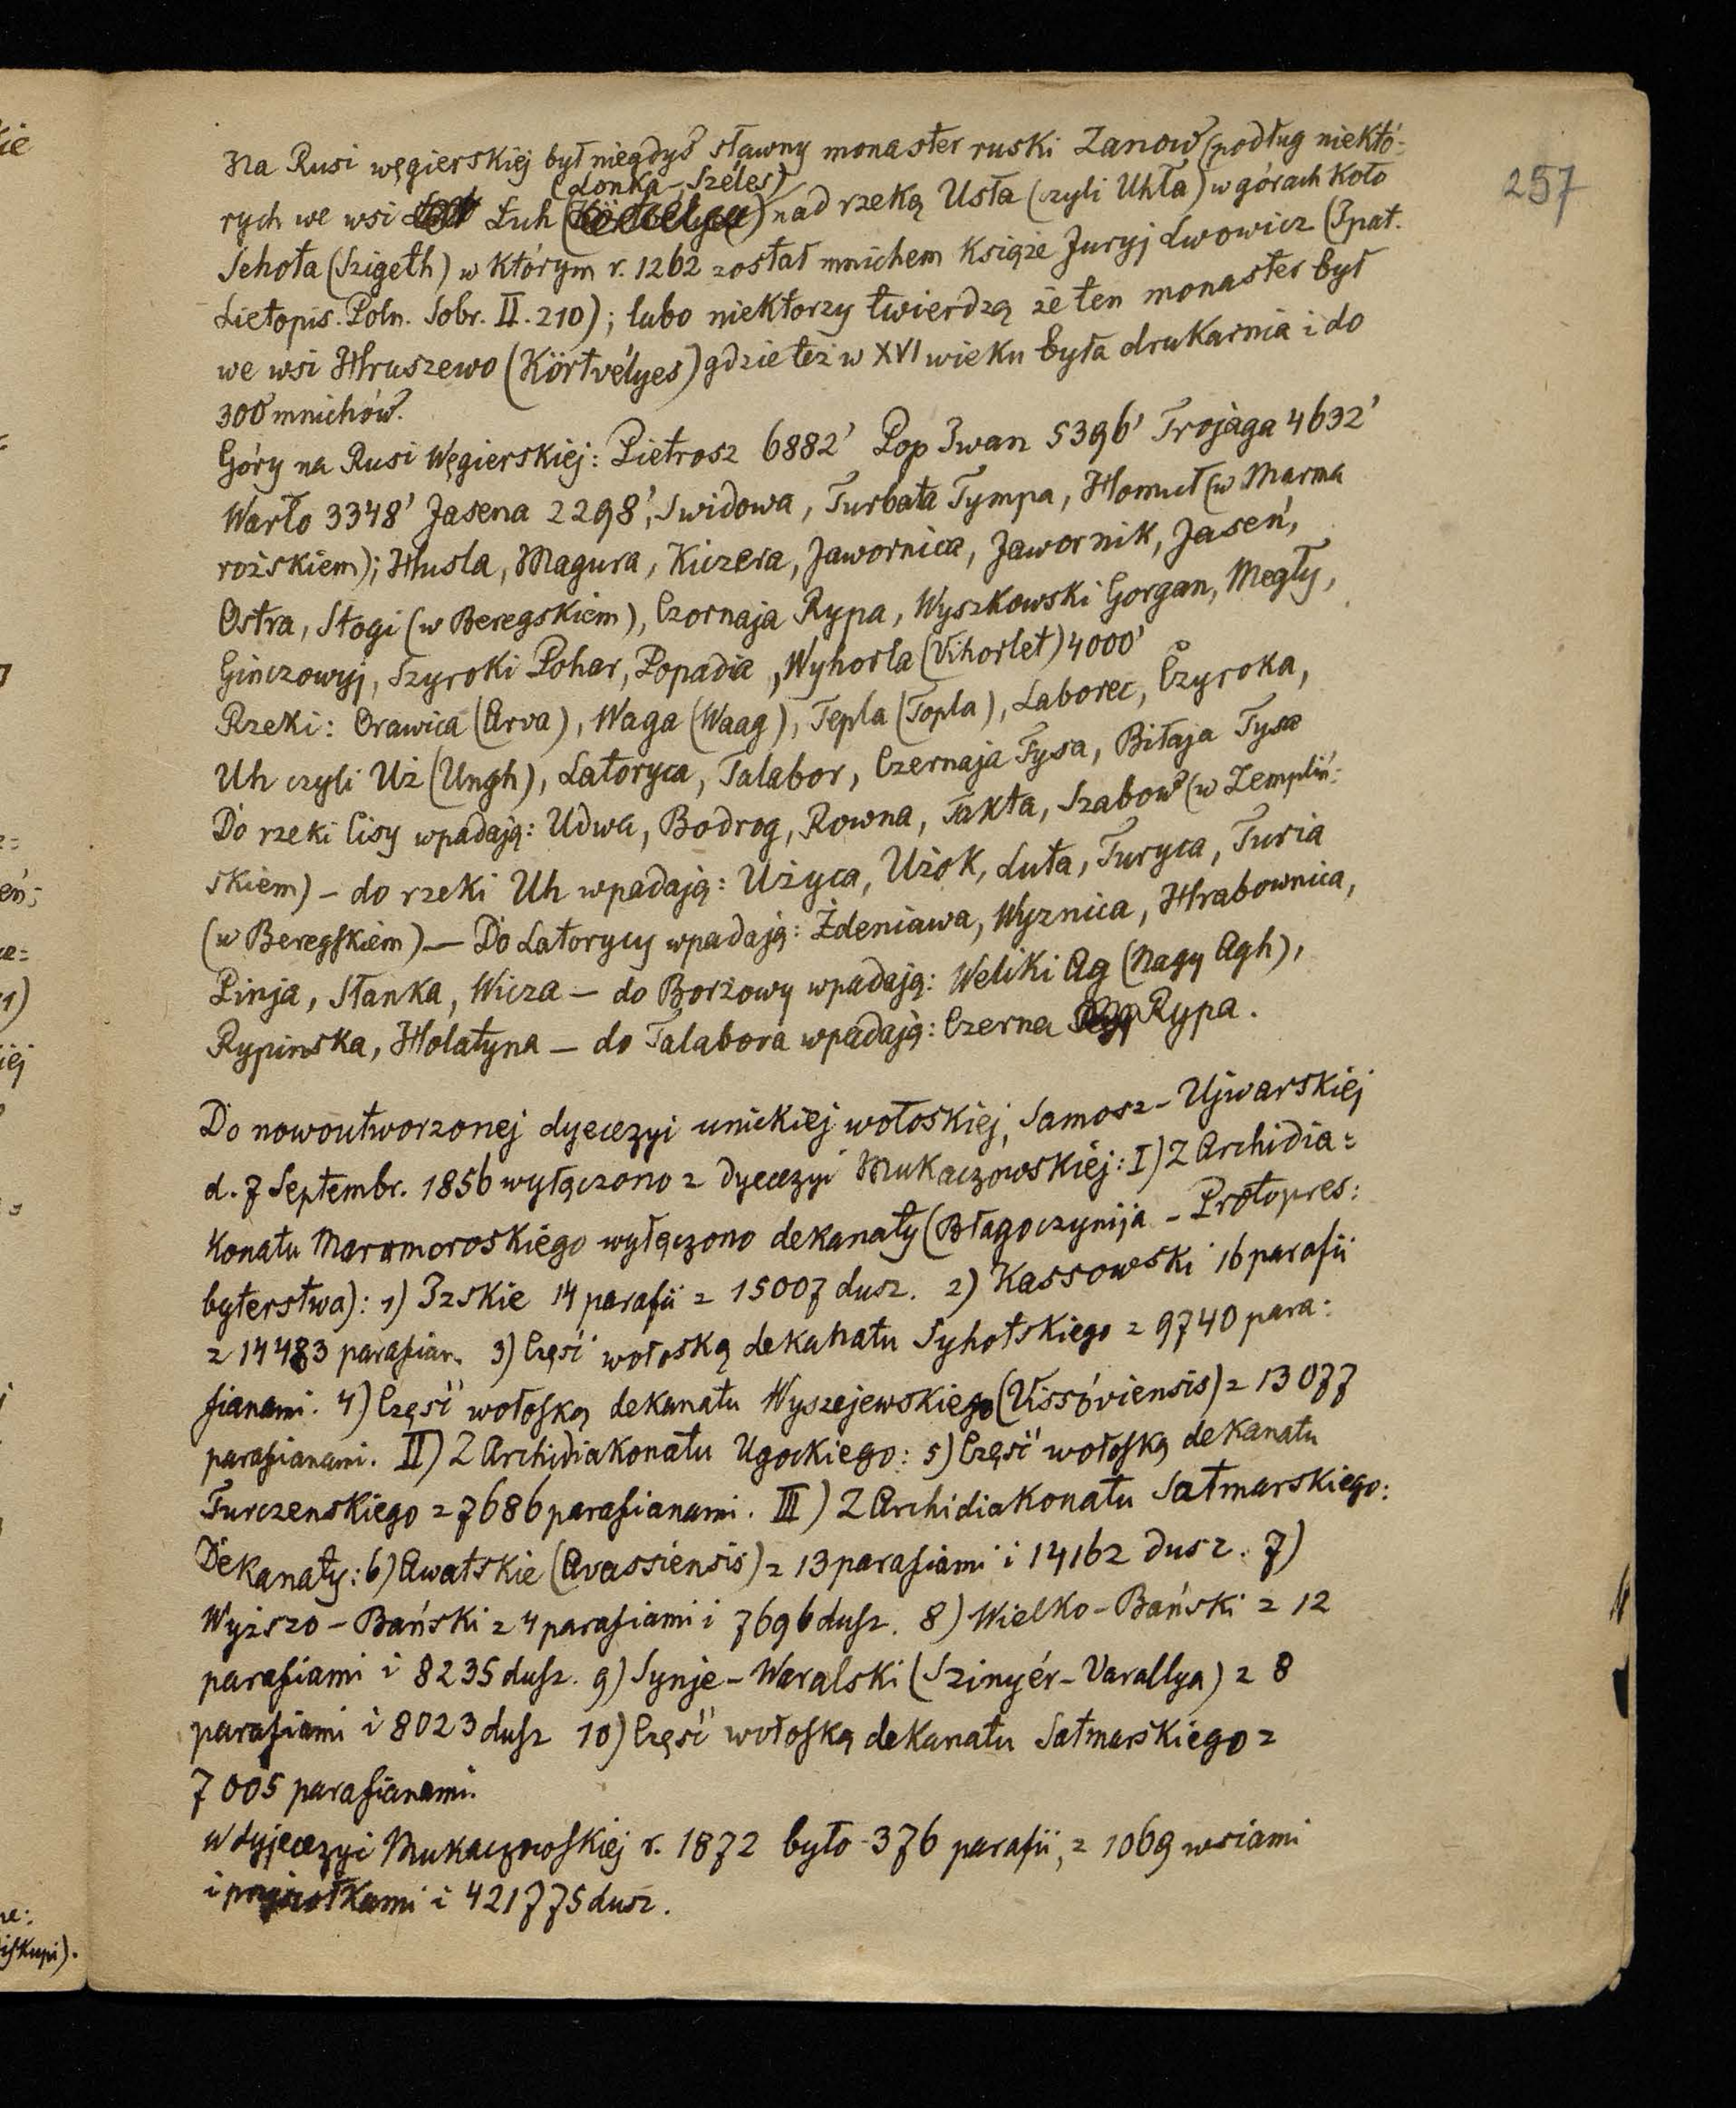 257
Na Rusi węgierskiej był niegdyś sławny monaster ruski Zanow (podług niektó-
(Lonka-Széles)
rych we wsi Łuh nad rzeką Usta (czyli Uhla) w górach koło
Sehota (Szigeth) w którym r. 1262 został mnichem Książe Juryj Lwowicz (Ipat.
Lietopis. Poln. Sobr. II. 210); lubo niektorzy twierdzą że ten monaster był
we wsi Hruszewo (Körtvélyes) gdzie też w XVI wieku była drukarnia i do
300 mnichów.
Góry na Rusi Węgierskiej: Pietrosz 6882' Pop Iwan 5396' Trojaga 4632'
Warto 3348' Jasena 2298', Swidowa, Turbata Tympa, Homuł (w Marma
rożskiem); Husla, Magura, Kiczera, Jawornica, Jawornik, Jaseń,
Ostra, Stogi (w Beregskiem), Czornaja Rypa, Wyszkowski Gorgan, Megły,
Ginczowyj, Szyroki Pohar, Popadia, Wyhorla (Vihorlet) 4000'
Rzeki: Orawica (Arva), Waga (Waag), Tepla (Topla), Laborec, Czyroka,
Uh czyli Uż (Ungh), Latoryca, Talabor, Czernaja Tysa, Biłaja Tysa
Do rzeki Cisy wpadają: Udwa, Bodrog, Rowna, Takta, Szabow (w Zempliń-
skiem) – do rzeki Uh wpadają: Użyca, Użok, Luta, Turyca, Turia
(w Beregskiem) — Do Latorycy wpadają: Żdeniawa, Wyznica, Hrabownica,
Pinja, Stanka, Wicza – do Borżowy wpadają: Weliki Ag (Nagy Agh),
Rypinska, Holatyna – do Talabora wpadają: Czerna Rypa.
Do nowoutworzonej dyecezyi unickiej wołoskiej, Samosz-Ujwarskiej
d. 7 Septembr. 1856 wyłączono z dyecezyi Mukaczowskiej: I) Z Archidia=
konatu Maramoroskiego wyłączono dekanaty (Błagoczynija – Protopres:
byterstwa): 1) Izskie 14 parafii z 15007 dusz. 2) Kassowski 16 parafii
z 14483 parafian. 3) Część wołoską dekanatu Syhotskiego z 9740 para:
fianami. 4) Część wołoską dekanatu Wyszejewskiego (Vissóviensis) z 13077
parafianami. II) Z Archidiakonatu Ugockiego: 5) Część wołoską dekanatu
Turczenskiego z 7686 parafianami. III) Z Archidiakonatu Satmarskiego:
Dekanaty: 6) Awatskie (Avassiensis) z 13 parafiami i 14162 dusz. 7)
Wyższo-Bański z 4 parafiami i 7696 dusz. 8) Wielko-Bański z 12
parafiami i 8235 dusz. 9) Synje-Waralski (Szinyér-Varallya) z 8
parafiami i 8023 dusz 10) Część wołoską dekanatu Satmarskiego z
7005 parafianami.
w dyjecezyi Mukaczowskiej r. 1872 było 376 parafii, z 1069 wsiami
i przysiołkami i 421775 dusz.